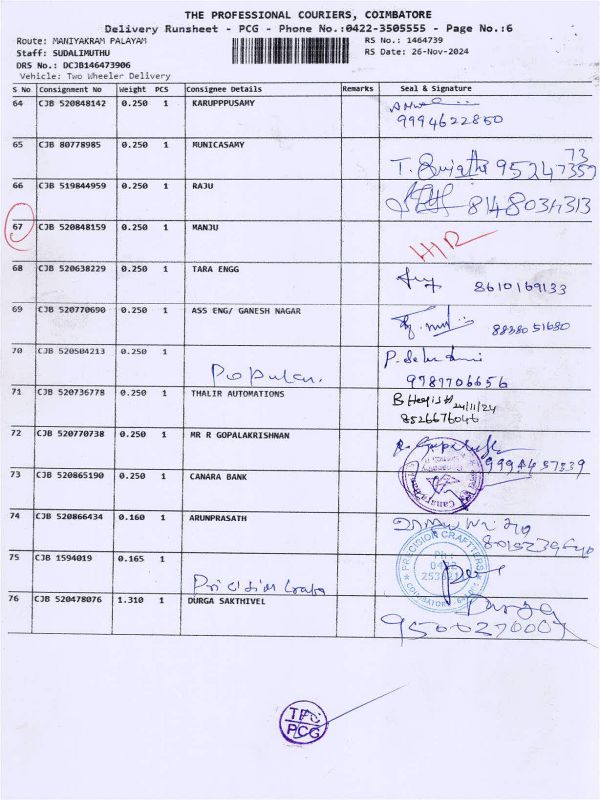 THE PROFESSIONAL COURIERS, COIMBATORE
Delivery Runsheet - PCG - Phone No.:0422-3505555 - Page No.:6
Route: MANIYAKRAM PALAYAM RS No.: 1464739
Staff: SUDALIMUTHU RS Date: 26-Nov-2024
DRS No.: DCJB146473906
Vehicle: Two Wheeler Delivery
S No Consignment No Weight PCS Consignee Details Remarks Seal & Signature
64 CJB 520848142 0.250 1 KARUPPPUSAMY
9994622850
65 CJB 80778985 0.250 1 MUNICASAMY
73
T. 95247357
66 CJB 519844959 0.250 1 RAJU
8148034313
67 CJB 520848159 0.250 1 MANJU
H/R
68 CJB 520638229 0.250 1 TARA ENGG
8610169133
69 CJB 520770690 0.250 1 ASS ENG/ GANESH NAGAR
8838051680
70 CJB 520504213 0.250 1
Popular. 9787706656
71 CJB 520736778 0.250 1 THALIR AUTOMATIONS
24/11/24
8526676046
72 CJB 520770738 0.250 1 MR R GOPALAKRISHNAN
73 CJB 520865190 0.250 1 CANARA BANK
74 CJB 520866434 0.160 1 ARUNPRASATH
PRECISION CRAFTTERS
Ph :
0422
COIMBATORE
75 CJB 1594019 0.165 1
76 CJB 520478076 1.310 1 DURGA SAKTHIVEL
Durga
9500270007
TPC
PCG